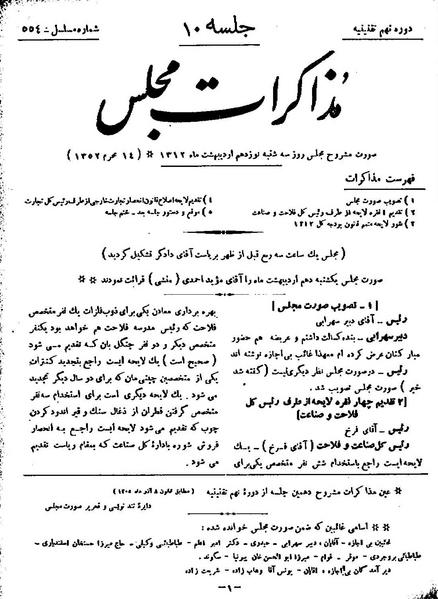 دوره نهم تقنینیه
جلسه ۱۰
شماره مسلسل - ۵۵۴
مذاکرات مجلس
صورت مشروح مجلس روز سه شنبه نوزدهم اردیبهشت ماه ۱۳۱۲ * (۱۴ محرم ۱۳۵۲)
فهرست مذاکرات
۱) تصویب صورت مجلس
۲) تقدیم ۴ فقره لایحه از طرف رئیس کل فلاحت و صناعت
۳) شور لایحه متمم قانون بودجه کل ۱۳۱۲
۴) تقدیم لایحه اصلاح قانون انحصار تجارت خارجی از طرف رئیس کل تجارت
۵) موقع و دستور جلسه بعد - ختم جلسه
(مجلس یک ساعت سه ربع قبل از ظهر بریاست آقای دادگر تشکیل گردید)
صورت مجلس یکشنبه دهم اردیبهشت ماه را آقای مؤید احمدی (منشی) قرائت نمودند
[۱ - تصویب صورت مجلس]
رئیس - آقای دبیر سهرابی
دبیر سهرابی - بنده کسالت داشتم و عریضه هم حضور
مبارکتان عرض کرده ام معهذا غائب بی اجازه نوشته اند
رئیس - در صورت مجلس نظر دیگری نیست (گفته شد
خیر) صورت مجلس تصویب شد.
[۲ تقدیم چهار فقره لایحه از طرف رئیس کل
فلاحت و صناعت]
رئیس - آقای فرخ
رئیس کل صناعت و فلاحت (آقای فرخ) - یک
لایحه ایست راجع باستخدام شش نفر متخصص یکی برای
بهره برداری معادن یکی برای ذوب فلزات یک نفر متخصص
فلاحت که رئیس مدرسه فلاحت هم خواهد بود یکنفر
متخصص دیگر و دو نفر جنگل بان که تقدیم می شود
(صحیح است) یک لایحه ایست راجع بتجدید کنترات
یکی از متخصصین چینی مان که برای دو سال دیگر تجدید
می شود. یک لایحه دیگری است برای استخدام سه نفر
متخصص گرفتن قطران از ذغال سنگ و قیر اندود کردن
چوب که تقدیم می شود لایحه ایست راجع به انحصار
فروش شوره بادارۀ کل صناعت که بمقام ریاست تقدیم
می شود.
* عین مذاکرات مشروح دهمین جلسه از دورۀ نهم تقنینیه (مطابق قانون ۸ آذر ماه ۱۳۰۵)
دایرۀ تند نویسی و تحریر صورت مجلس
* اسامی غائبین که ضمن صورت مجلس خوانده شده:
غائبین بی اجازه - آقایان: دبیر سهرابی - حیدری - دکتر امیر اعلم - طباطبائی وکیلی - حاج میرزا حسنخان اسفندیاری -
طباطبائی بروجردی - موقر - قوام - میرزا ابوالحسن خان پیرنیا - سکوند.
دیر آمدگان بی اجازه - آقایان - یونس آقا وهاب زاده - شریعت زاده
-۱-